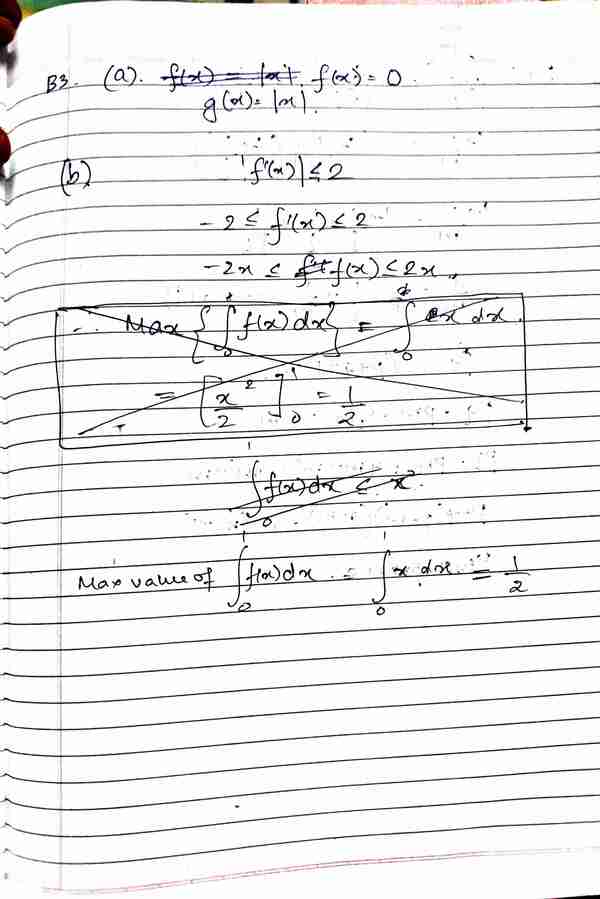 B3. (a). f(x) = |x| f(x) = 0
g(x) = |x|.
(b) |f'(x)| ≤ 2
-2 ≤ f'(x) ≤ 2
-2x ≤ f(x) ≤ 2x
∴ Max { ∫₀¹ f(x) dx } = ∫₀ x dx.
= [x²/2]₀¹ = 1/2.
∫₀¹ f(x) dx ≤ x²
Max value of ∫₀¹ f(x) dx = ∫₀¹ x dx = 1/2